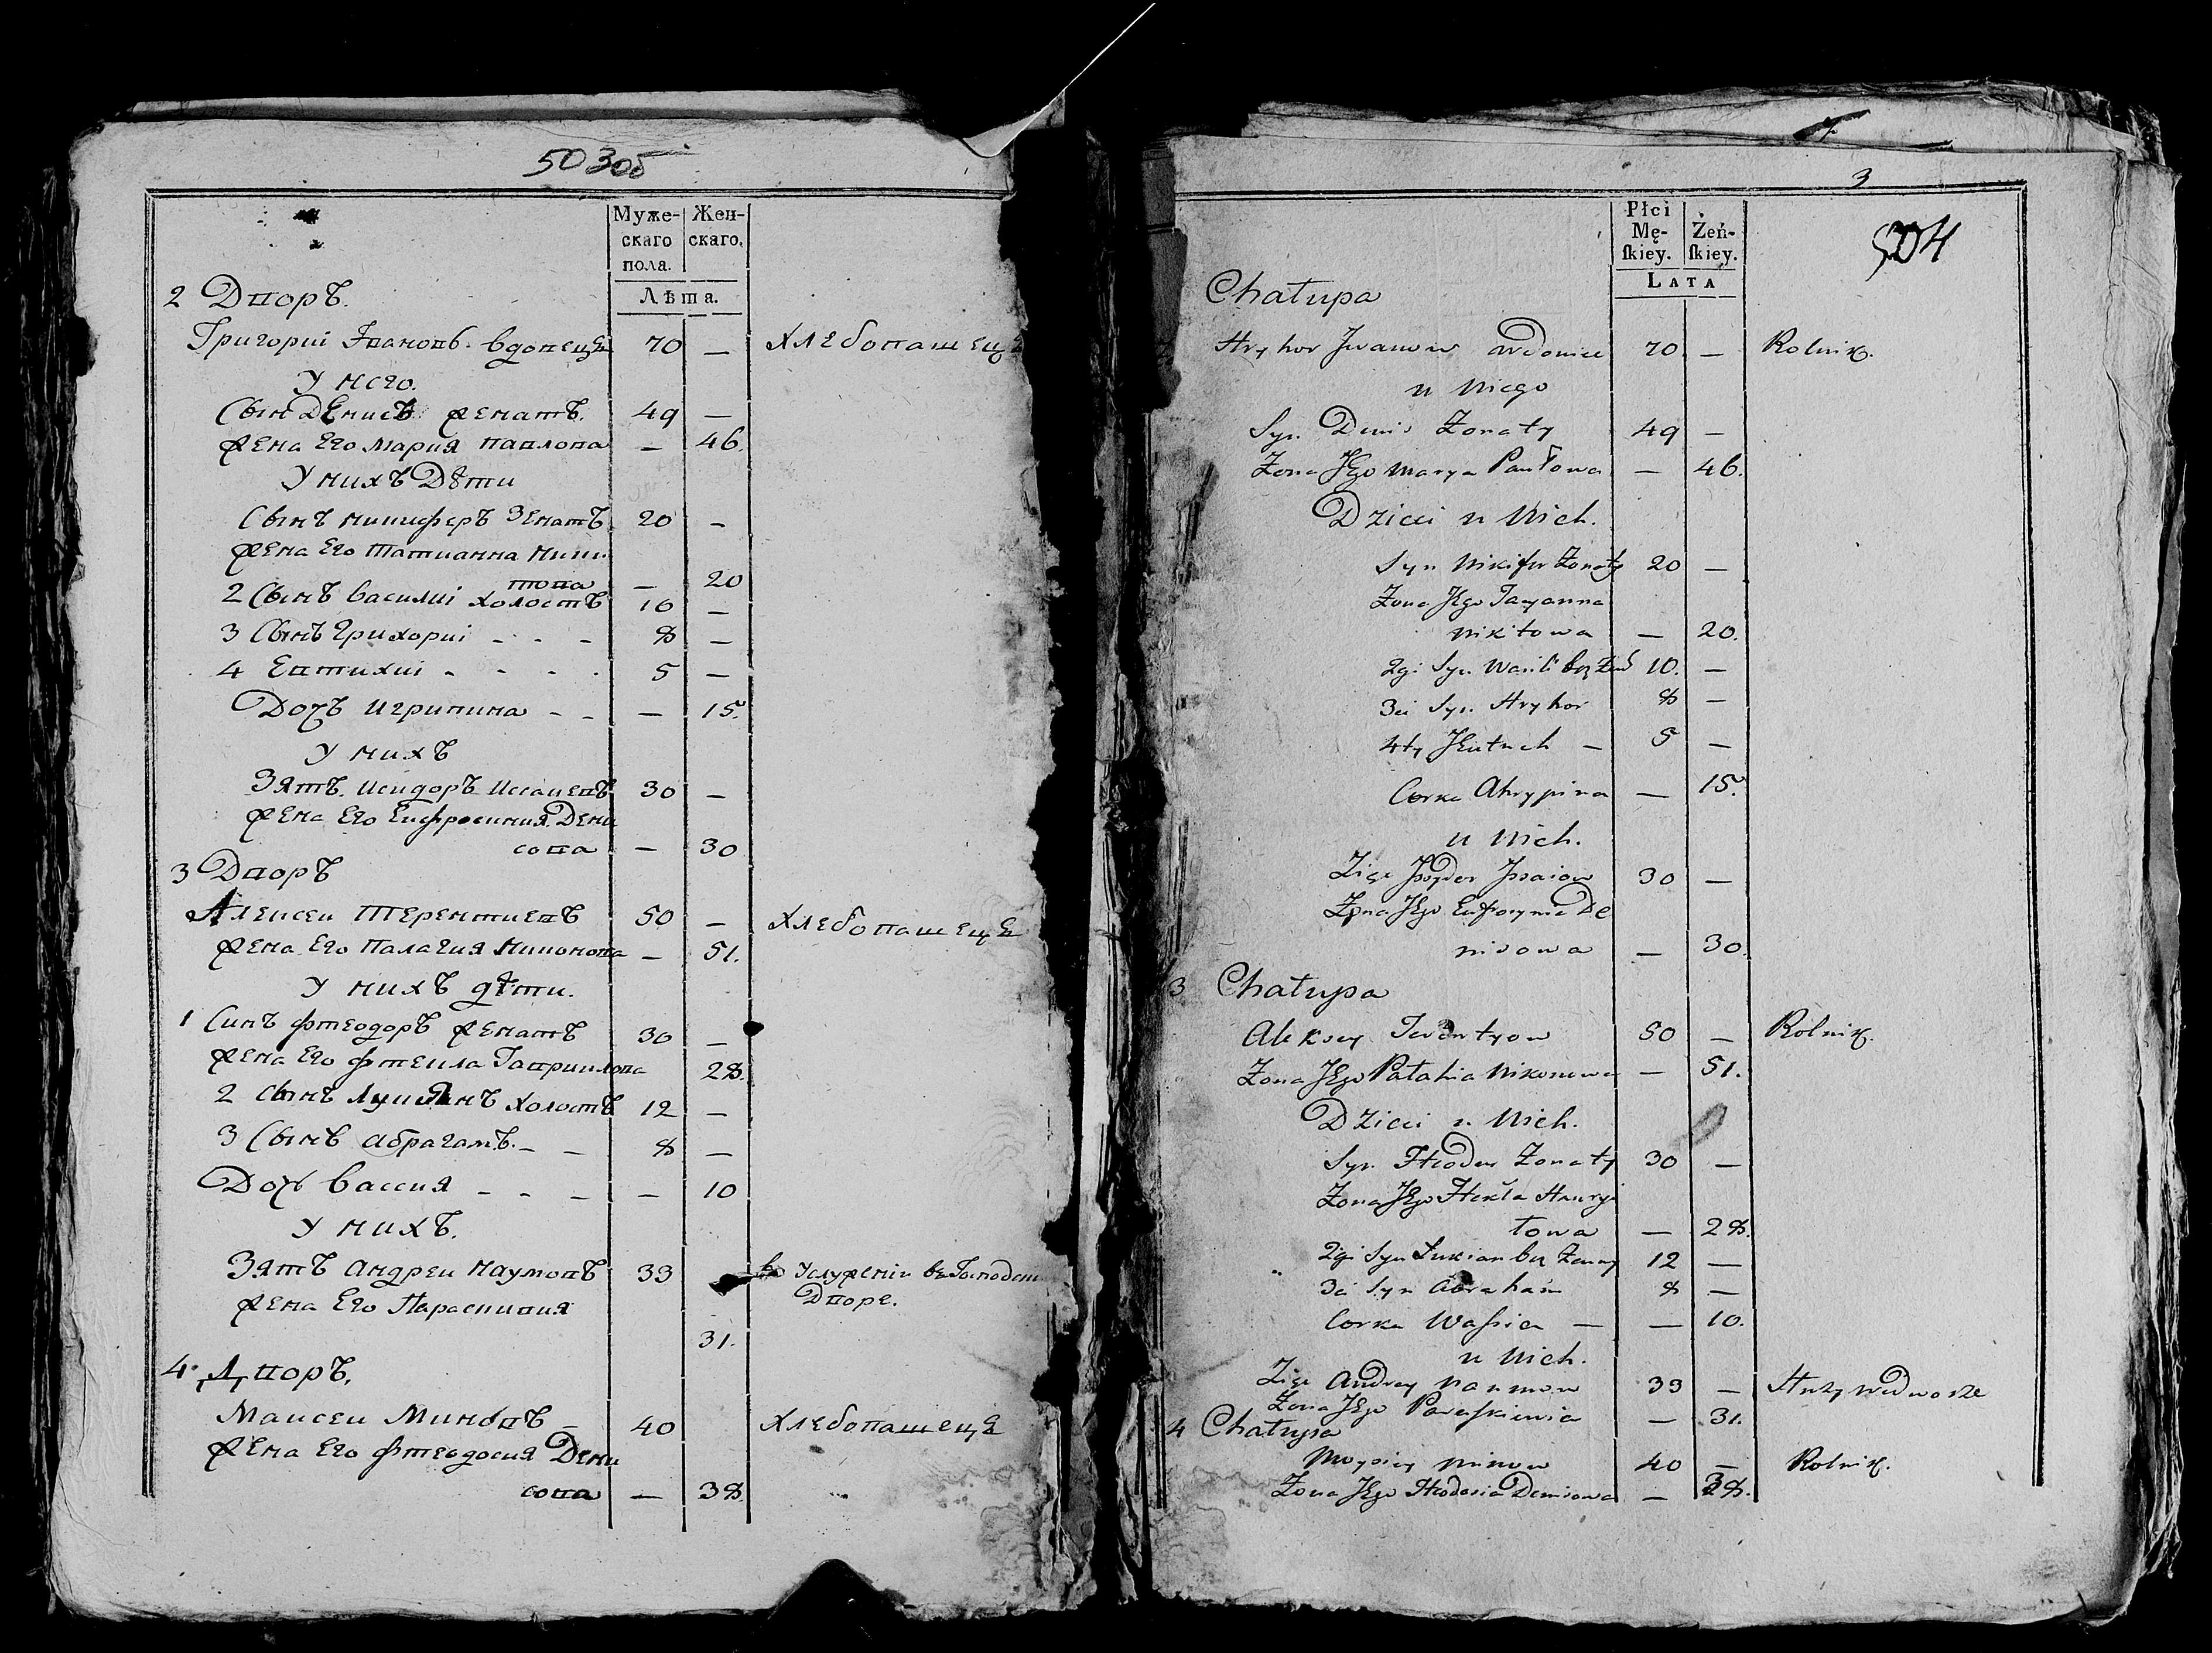 503об
Муже-
скаго
пола.
Жен-
скаго.
Лѣта.
2 Дворъ.
Григориі Ивановъ вдовецъ 70 — Хлебопашецъ
У него.
Сынъ Денисъ женатъ. 49 —
жена Его Мария Павлова — 46.
У нихъ Дѣти
Сынъ Никифоръ женатъ 20 —
жена Его Татианна Ники-
това — 20
2 Сынъ Василиі холостъ 10 —
3 Сынъ Грихориі - - - 8 —
4 Евтихиі - - - - 5 —
Дочъ Игрипина - - — 15.
У нихъ
Зятъ Исидоръ Исаиевъ 30 —
жена Его Евфросиния Дени
сова — 30
3 Дворъ
Алексеи Терентиевъ 50 — Хлебопашецъ
жена Его Палагия Никонова — 51.
У нихъ дѣти.
1 Синъ Фтеодоръ женатъ 30 —
жена Его Фтекла Гавриилова 28.
2 Сынъ Лукиянъ холостъ 12 —
3 Сынъ Абрагамъ - - 8 —
Дочъ Вассия - - - — 10
У нихъ.
Зятъ Андреи Наумовъ 33 в Услужениі въ Господскомъ
Дворе.
жена Его Параскивия
31.
4. Дворъ.
Маисеи Миновъ — 40 Хлебопашецъ
жена Его Фтеодосия Дени
сова — 38.
3
504
Płci
Mę-
ſkiey.
Żeń-
ſkiey.
Lata
Chałupa
Hryhor Jwanow wdowiec 70 — Rolnik.
u Niego
Syn Denis Żonaty 49 —
Żona Jego Marya Pawłowa — 46.
Dzieci u Nich.
Syn Nikifor Żonaty 20 —
Żona Jego Tacyanna
Nikitowa — 20.
2gi Syn Wasili bez Żony 10. —
3ci Syn Hryhor 8 —
4ty Jeutuch — 5 —
Corka Ahrypina — 15.
u Nich.
Zięć Jzydor Jsaiow 30 —
Żona Jego Eufrosynia De
nisowa — 30.
3 Chałupa
Aleksey Terentyow 50 — Rolnik.
Żona Jego Pałahia Nikonowa — 51.
Dzieci u Nich.
Syn Hteodor Żonaty 30 —
Żona Jego Htekla Hawryi
łowa — 28.
2gi Syn Łukian bez Żenny 12 —
3ci Syn Abraham 8 —
Corka Waſsia — — 10.
u Nich.
Zięć Andrey Naumow 33 — Służy we dworze
Żona Jego Paraſkiewia — 31.
4 Chałupa
Moysiey Minow 40 — Rolnik.
Żona Jego Hteodosia Denisowa — 38.